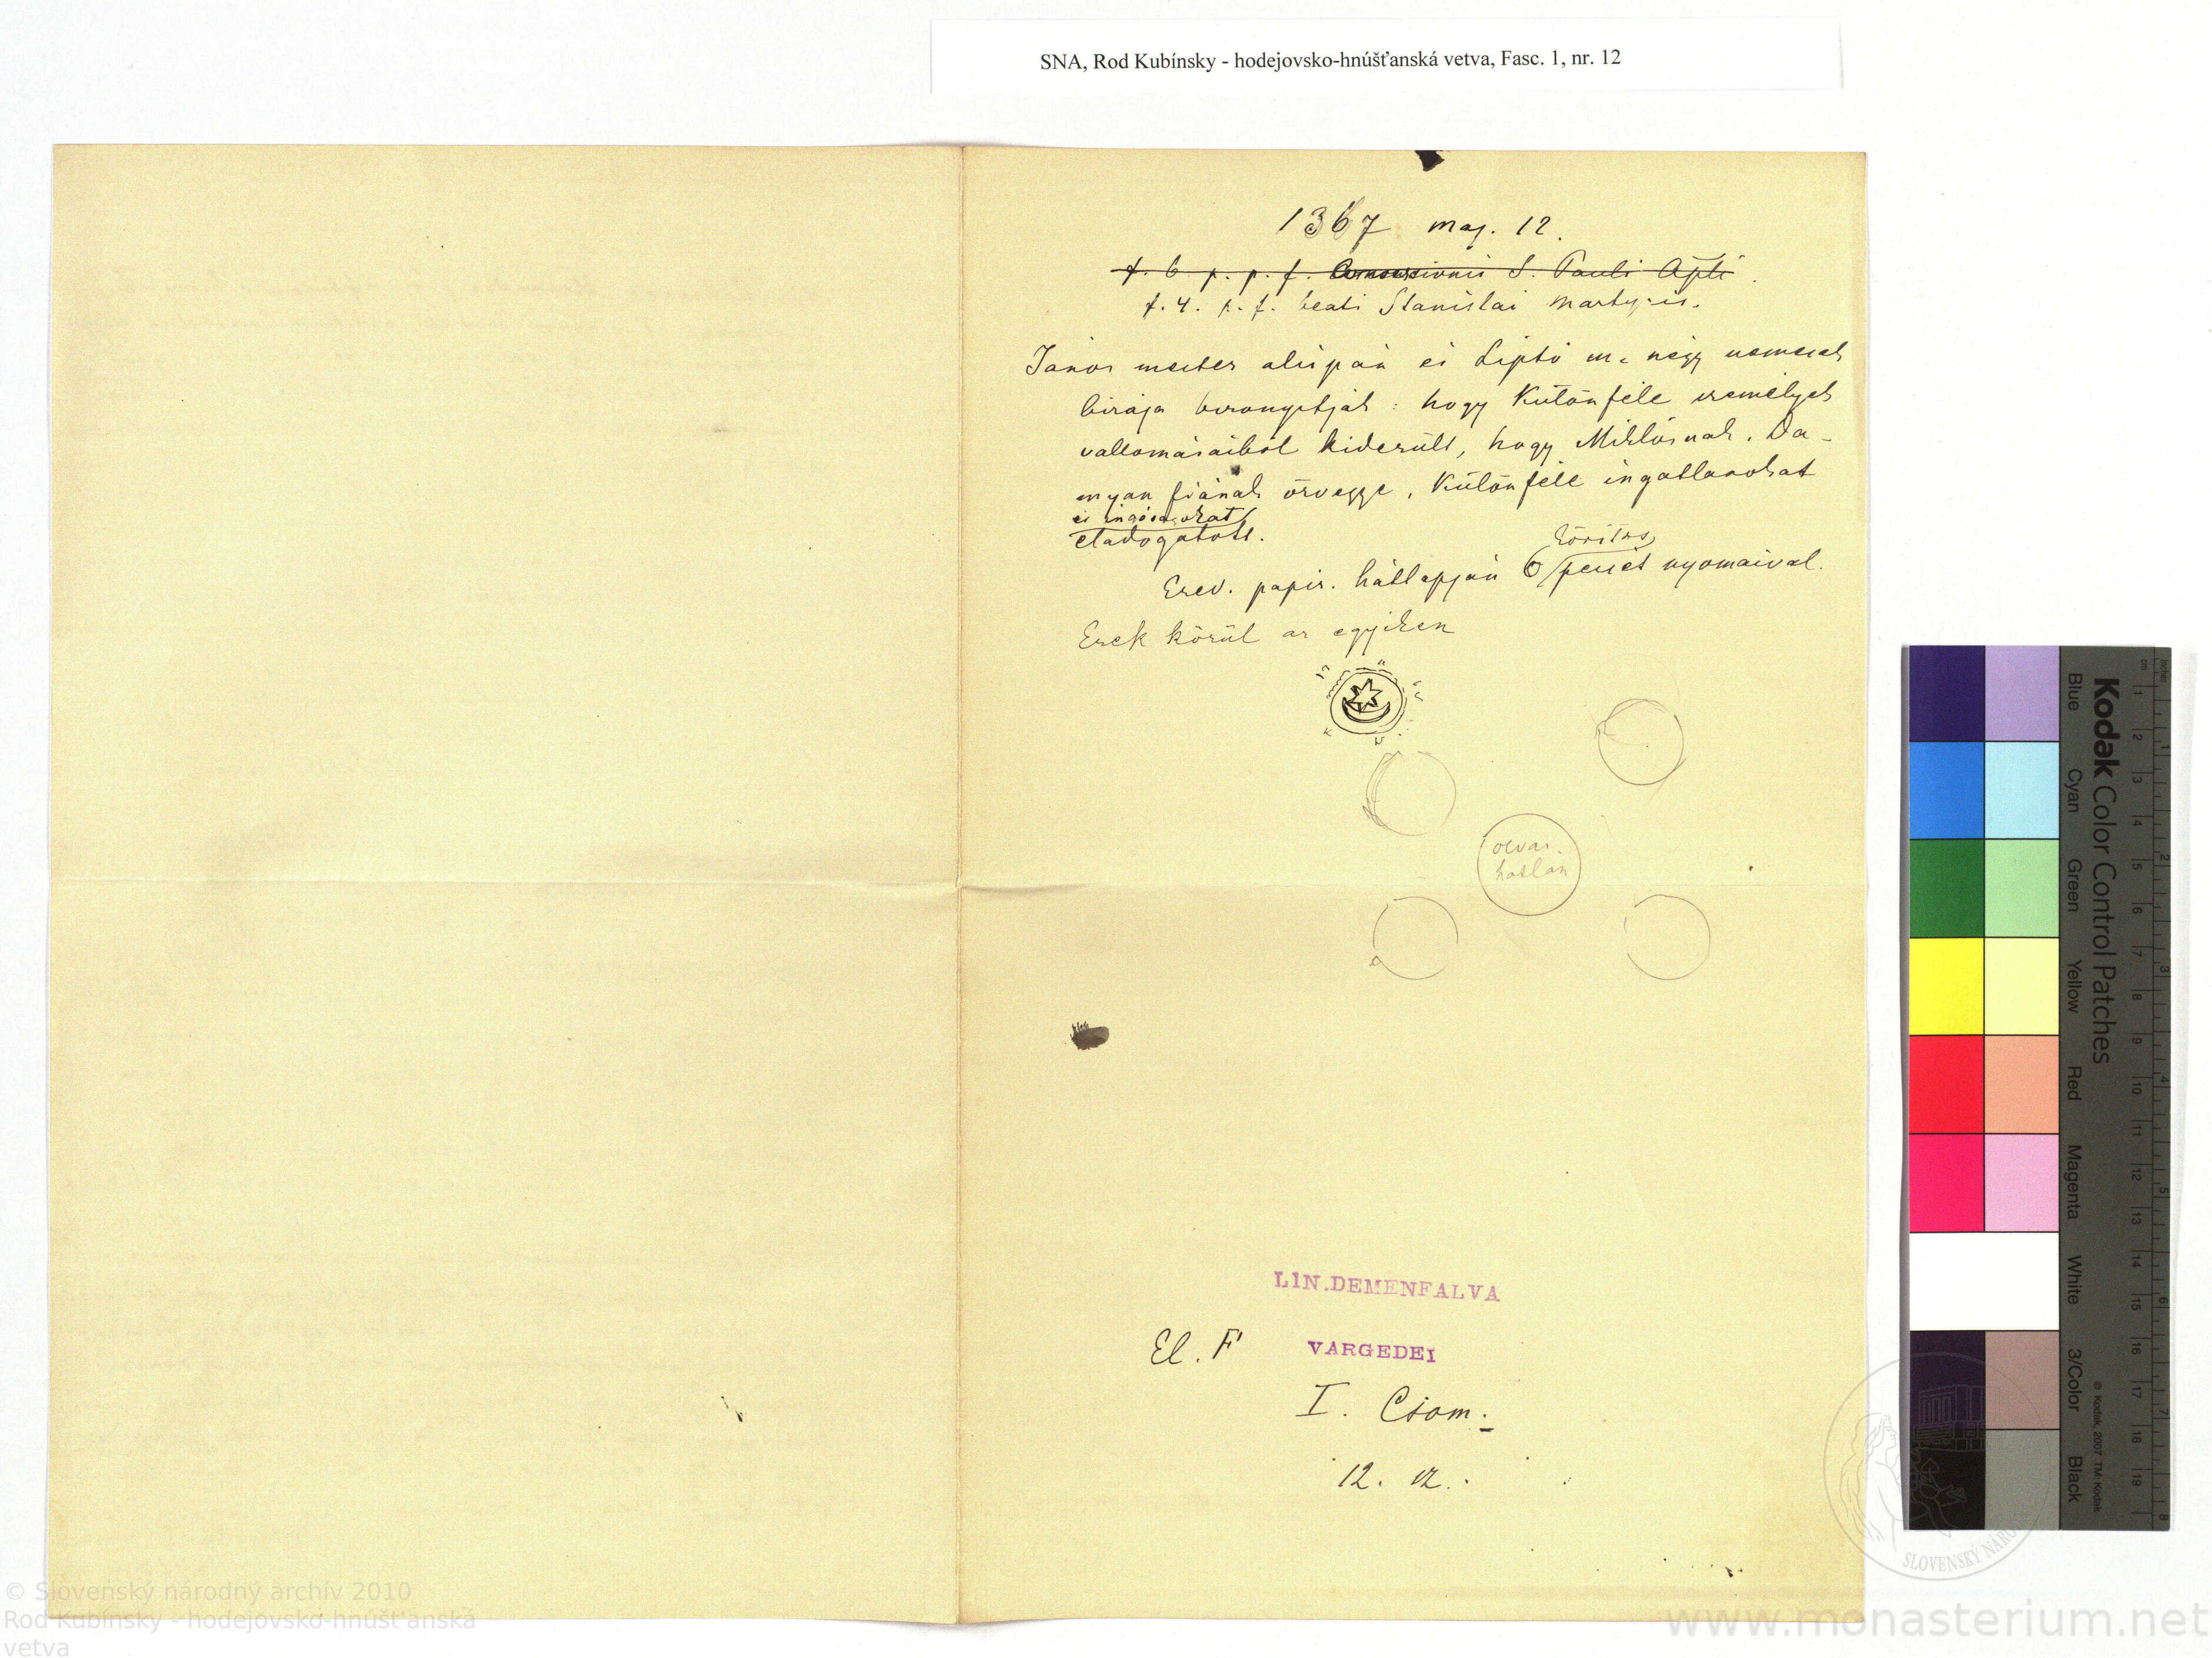 SNA, Rod Kubínsky - hodejovsko-hnúšťanská vetva, Fasc. 1, nr. 12
1367 maj. 12.
f. 6 p. p. f. Conversionis S. Pauli Apli
f. 4. p. f. beati Stanislai martyris.
János mester alispán és Liptó m. négy nemesek
birája bizonyitják: hogy Különféle személyek
vallomásaiból kiderült, hogy Miklósnak, Da-
myan fiának özvegye, Különféle ingatlanokat
és ingóságokat
eladogatott.
Ered. papir. hátlapján 6 pecsét nyomaival.
Ezek körül az egyiken
olvas-
hatlan
LIN.DEMENFALVA
El. F VARGEDEI
I. Csom.
12. sz.
Kodak Color Control Patches
Blue Cyan Green Yellow Red Magenta White 3/Color Black
© Kodak, 2007 TM: Kodak
© Slovenský národný archív 2010
Rod Kubínsky - hodejovsko-hnúšťanská
vetva
SLOVENSKÝ NÁRO
www.monasterium.net